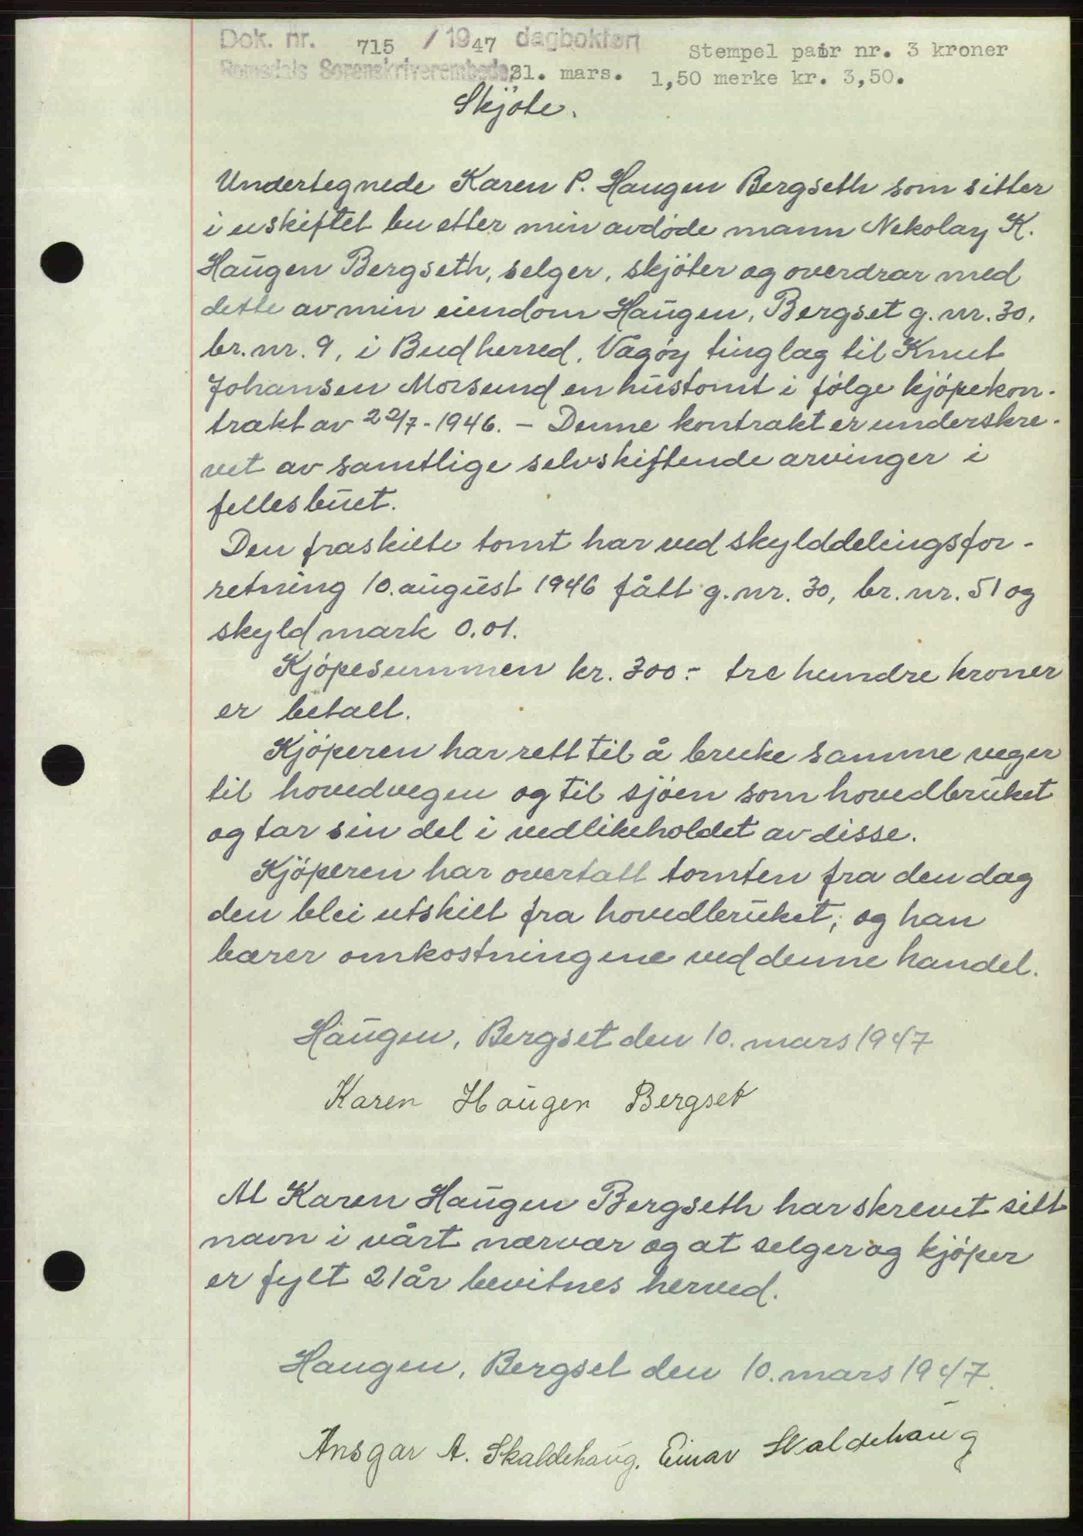 Dok. nr. 715 / 1947 dagbokført
Stempel papir nr. 3 kroner
Romsdals Sorenskriverembede 31. mars. 1,50 merke kr. 3,50.
Skjøte.
Undertegnede Karen P. Haugen Bergseth som sitter
i uskiftet bu etter min avdøde mann Nekolay K.
Haugen Bergseth, selger, skjøter og overdrar med
dette av min eiendom Haugen, Bergset g.nr. 30,
br.nr. 9, i Bud herred, Vågøy tinglag til Knut
Johansen Morsund en hustomt i følge kjøpekon-
trakt av 22/7-1946. - Denne kontrakt er underskre-
vet av samtlige selvskiftende arvinger i
fellesbuet.
Den fraskilte tomt har ved skylddelingsfor-
retning 10. august 1946 fått g.nr. 30, br.nr. 51 og
skyld mark 0.01.
Kjøpesummen kr. 300.- tre hundre kroner
er betalt.
Kjøperen har rett til å bruke samme veger
til hovedvegen og til sjøen som hovedbruket
og tar sin del i vedlikeholdet av disse.
Kjøperen har overtatt tomten fra den dag
den blei utskilt fra hovedbruket, og han
bærer omkostningene ved denne handel.
Haugen, Bergset den 10. mars 1947
Karen Haugen Bergset
At Karen Haugen Bergseth har skrevet sitt
navn i vårt nærvær og at selger og kjøper
er fylt 21 år bevitnes herved.
Haugen, Bergset den 10. mars 1947.
Ansgar A. Skaldehaug. Einar Skaldehaug